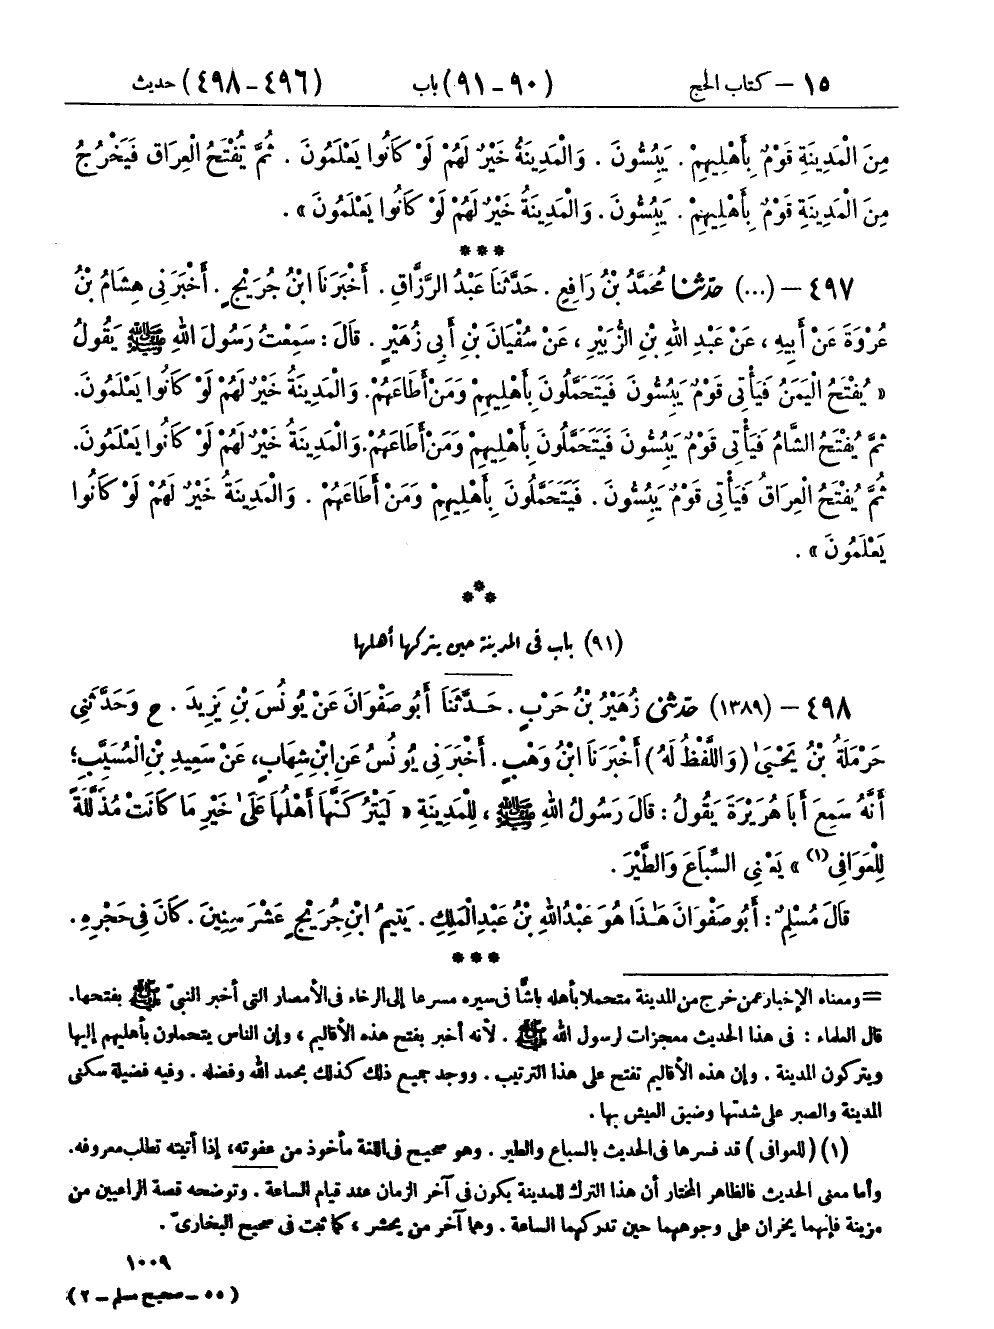 ١٥ – كتاب الحج (٩٠-٩١) باب (٤٩٦-٤٩٨) حديث
مِنَ الْمَدِينَةِ قَوْمٌ بِأَهْلِيهِمْ . يَبِسُّونَ . وَالْمَدِينَةُ خَيْرٌ لَهُمْ لَوْ كَانُوا يَعْلَمُونَ . ثُمَّ تُفْتَحُ الْعِرَاقُ فَيَخْرُجُ
مِنَ الْمَدِينَةِ قَوْمٌ بِأَهْلِيهِمْ . يَبِسُّونَ . وَالْمَدِينَةُ خَيْرٌ لَهُمْ لَوْ كَانُوا يَعْلَمُونَ » .
***
٤٩٧ – (...) حَدَّثَنَا مُحَمَّدُ بْنُ رَافِعٍ . حَدَّثَنَا عَبْدُ الرَّزَّاقِ . أَخْبَرَنَا ابْنُ جُرَيْجٍ . أَخْبَرَنِى هِشَامُ بْنُ
عُرْوَةَ عَنْ أَبِيهِ ، عَنْ عَبْدِ اللهِ بْنِ الزُّبَيْرِ ، عَنْ سُفْيَانَ بْنِ أَبِى زُهَيْرٍ . قَالَ : سَمِعْتُ رَسُولَ اللهِ ﷺ يَقُولُ
« يُفْتَحُ الْيَمَنُ فَيَأْتِى قَوْمٌ يَبِسُّونَ فَيَتَحَمَّلُونَ بِأَهْلِيهِمْ وَمَنْ أَطَاعَهُمْ. وَالْمَدِينَةُ خَيْرٌ لَهُمْ لَوْ كَانُوا يَعْلَمُونَ.
ثُمَّ يُفْتَحُ الشَّامُ فَيَأْتِى قَوْمٌ يَبِسُّونَ فَيَتَحَمَّلُونَ بِأَهْلِيهِمْ وَمَنْ أَطَاعَهُمْ. وَالْمَدِينَةُ خَيْرٌ لَهُمْ لَوْ كَانُوا يَعْلَمُونَ.
ثُمَّ يُفْتَحُ الْعِرَاقُ فَيَأْتِى قَوْمٌ يَبِسُّونَ . فَيَتَحَمَّلُونَ بِأَهْلِيهِمْ وَمَنْ أَطَاعَهُمْ . وَالْمَدِينَةُ خَيْرٌ لَهُمْ لَوْ كَانُوا
يَعْلَمُونَ » .
***
(٩١) باب فى المدينة حين يتركها أهلها
٤٩٨ – (١٣٨٩) حَدَّثَنِى زُهَيْرُ بْنُ حَرْبٍ . حَدَّثَنَا أَبُو صَفْوَانَ عَنْ يُونُسَ بْنِ يَزِيدَ . ح وَحَدَّثَنِى
حَرْمَلَةُ بْنُ يَحْيَىٰ (وَاللَّفْظُ لَهُ) أَخْبَرَنَا ابْنُ وَهْبٍ . أَخْبَرَنِى يُونُسُ عَنِ ابْنِ شِهَابٍ، عَنْ سَعِيدِ بْنِ الْمُسَيَّبِ؛
أَنَّهُ سَمِعَ أَبَا هُرَيْرَةَ يَقُولُ : قَالَ رَسُولُ اللهِ ﷺ ، لِلْمَدِينَةِ « لَيَتْرُكَنَّهَا أَهْلُهَا عَلَىٰ خَيْرِ مَا كَانَتْ مُذَلَّلَةً
لِلْعَوَافِى (١) » يَعْنِى السِّبَاعَ وَالطَّيْرَ .
قَالَ مُسْلِمٌ : أَبُو صَفْوَانَ هَٰذَا هُوَ عَبْدُ اللهِ بْنُ عَبْدِ الْمَلِكِ . يَتِيمُ ابْنِ جُرَيْجٍ عَشْرَ سِنِينَ . كَانَ فِى حَجْرِهِ .
***
= ومعناه الإخبار عمن خرج من المدينة متحملا بأهله باسًّا فى سيره مسرعا إلى الرخاء فى الأمصار التى أخبر النبىّ ﷺ بفتحها.
قال العلماء : فى هذا الحديث معجزات لرسول الله ﷺ . لأنه أخبر بفتح هذه الأقاليم ، وإن الناس يتحملون بأهليهم إليها
ويتركون المدينة . وإن هذه الأقاليم تفتح على هذا الترتيب . ووجد جميع ذلك كذلك بحمد الله وفضله . وفيه فضيلة سكنى
المدينة والصبر على شدتها وضيق العيش بها .
(١) (للعوافى) قد فسرها فى الحديث بالسباع والطير . وهو صحيح فى اللغة مأخوذ من عفوته، إذا أتيته تطلب معروفه.
وأما معنى الحديث فالظاهر المختار أن هذا الترك للمدينة يكون فى آخر الزمان عند قيام الساعة . وتوضحه قصة الراعيين من
مزينة فإنهما يخران على وجوههما حين تدركهما الساعة . وهما آخر من يحشر ، كما ثبت فى صحيح البخارىّ .
١٠٠٩
(٥٥ – صحيح مسلم – ٢)